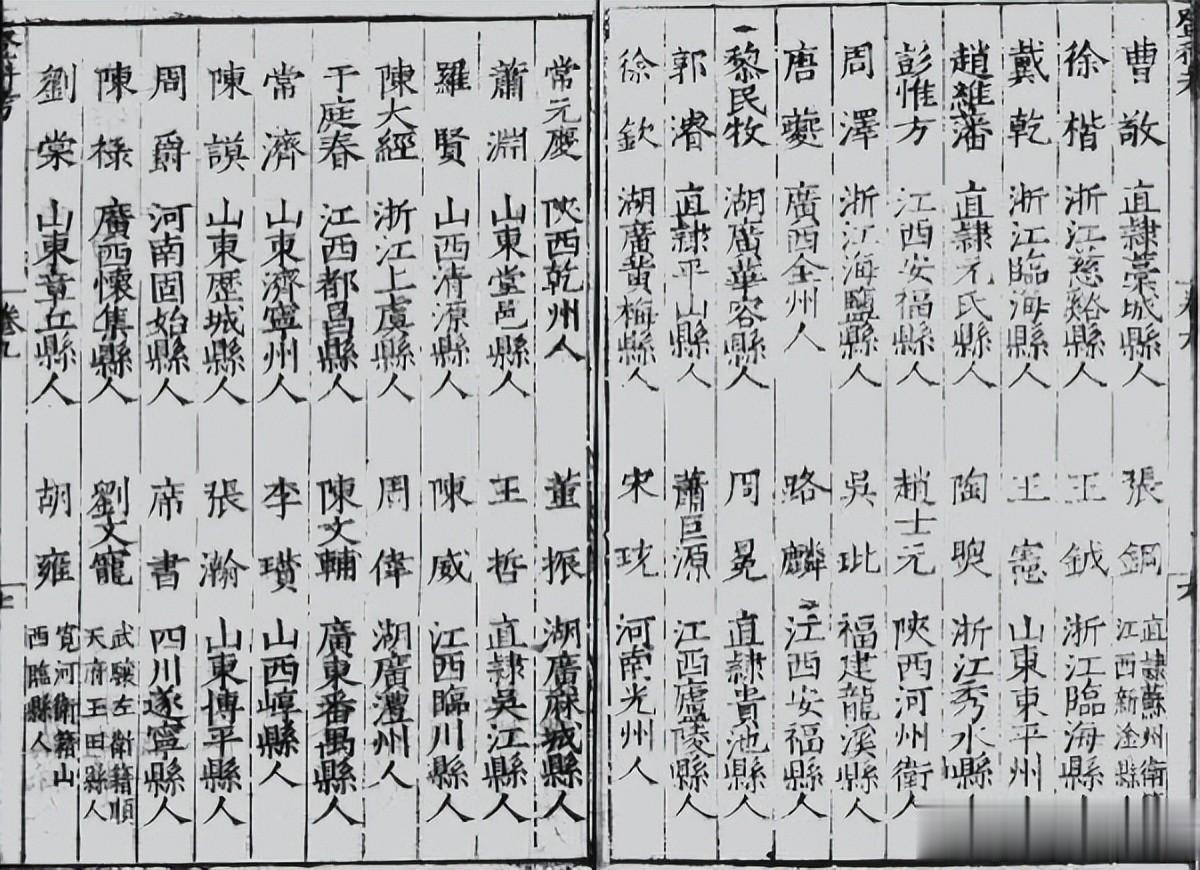 曹敔 直隸藁城縣人 張鋼 直隸蘇州衛
江西新淦縣
徐楷 浙江慈谿縣人 王鉞 浙江臨海縣
戴乾 浙江臨海縣人 王憲 山東東平州
趙維藩 直隸元氏縣人 陶 浙江秀水縣
彭惟方 江西安福縣人 趙士元 陝西河州衛人
周澤 浙江海鹽縣人 吳玭 福建龍溪縣人
唐夔 廣西全州人 路麟 江西安福縣人
黎民牧 湖廣華容縣人 周冕 直隸貴池縣人
郭濬 直隸平山縣人 蕭巨源 江西廬陵縣人
徐欽 湖廣黃梅縣人 宋珫 河南光州人
常元慶 陝西乾州人 董振 湖廣麻城縣人
蕭淵 山東堂邑縣人 王哲 直隸吳江縣人
羅賢 山西清源縣人 陳威 江西臨川縣人
陳大經 浙江上虞縣人 周偉 湖廣澧州人
于庭春 江西都昌縣人 陳文輔 廣東番禺縣人
常濟 山東濟寧州人 李瓚 山西崞縣人
陳謨 山東歷城縣人 張瀚 山東博平縣人
周爵 河南固始縣人 席書 四川遂寧縣人
陳祿 廣西懷集縣人 劉文寵 武驤左衛籍順
天府玉田縣人
劉棠 山東章丘縣人 胡雍 寬河衛籍山
西臨縣人
卷九